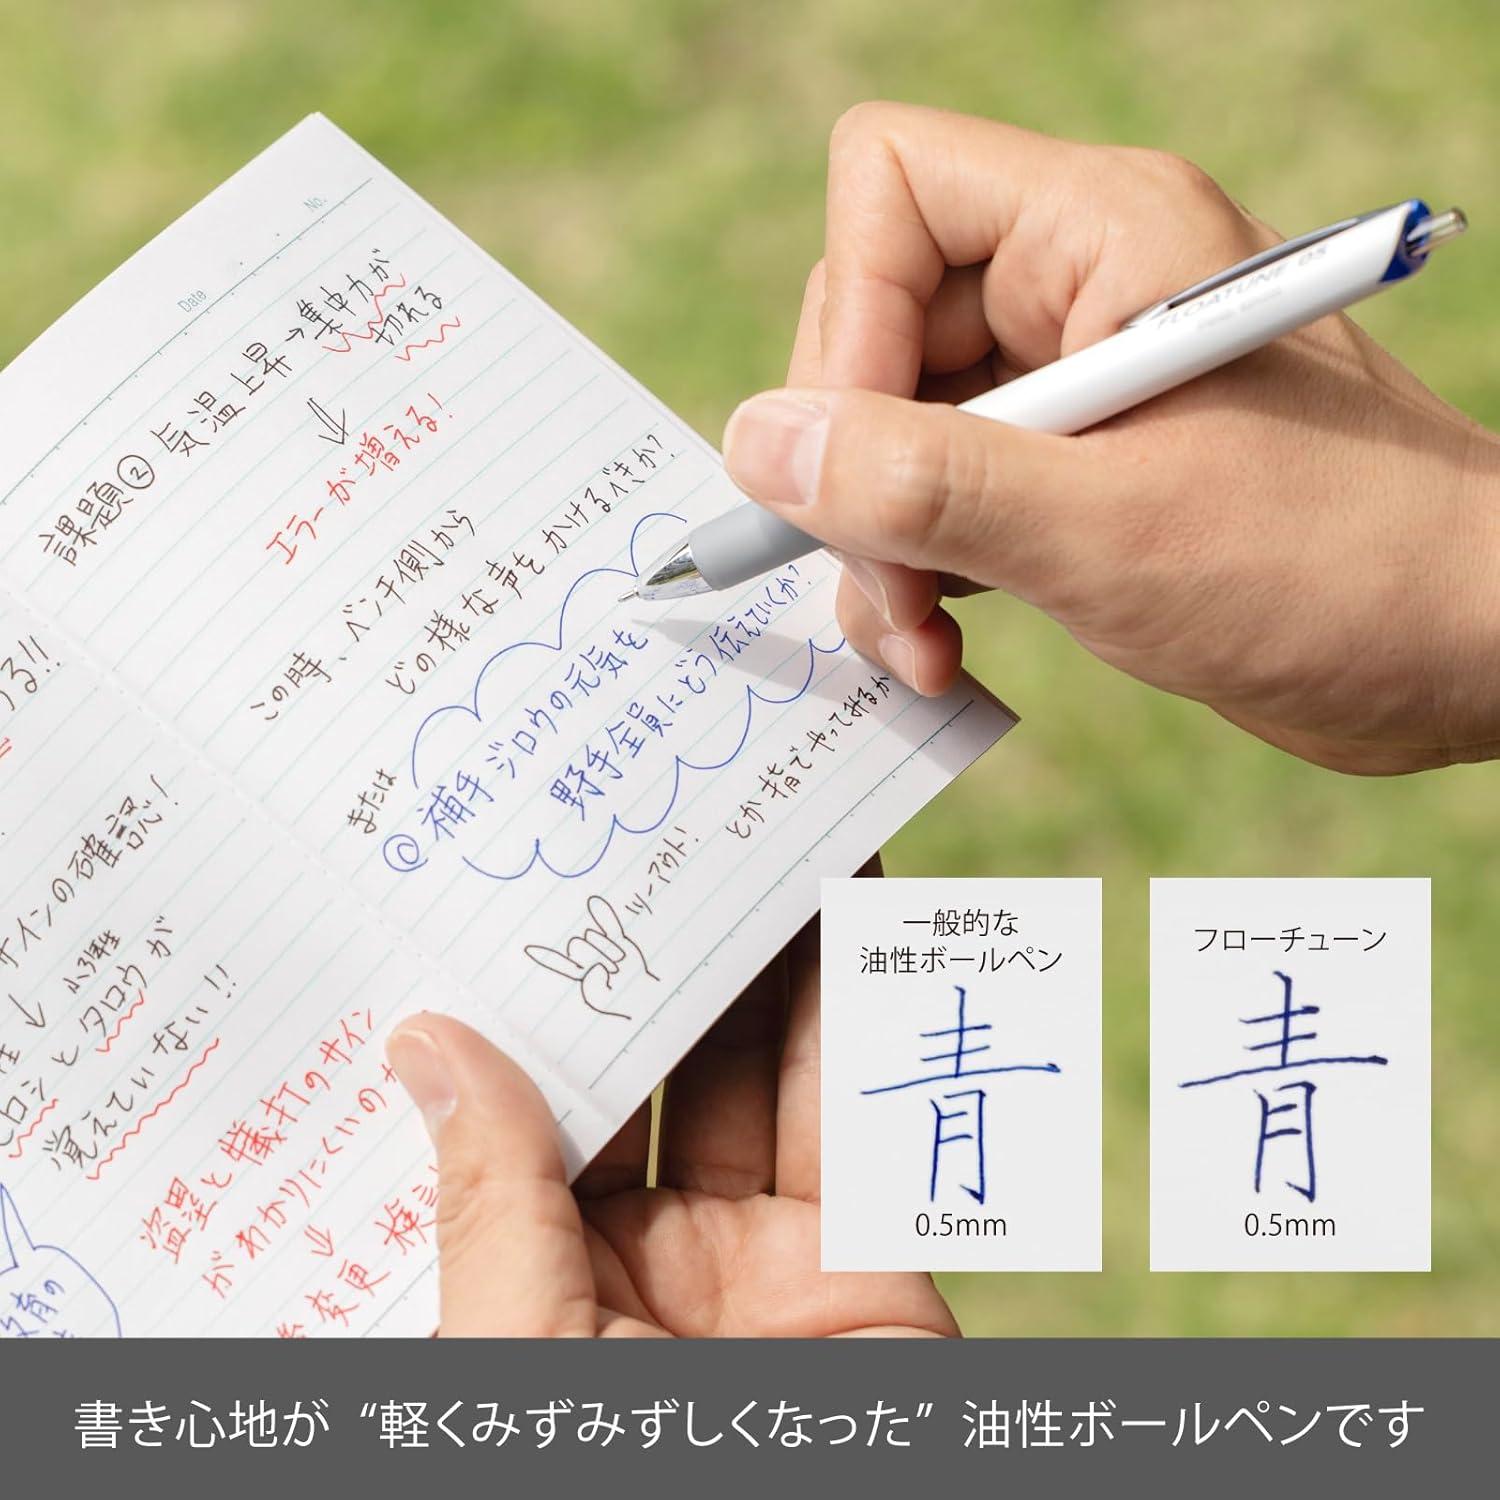 No.
Date
課題② 気温上昇→集中力が
切れる
⇓
エラーが増える!
この時、ベンチ側から
どの様な声をかけるべきか?
または
@補手ジロウの元気を
野手全員にどう伝えていくか?
ツーアウト!
とか指でやってみるか
る!!
サインの確認!
から3種
とタロウが
覚えていない!!
盗塁と犠打のサイン
がわかりにくいのが
⇓
変更 検討
教育の
FLOATUNE 05
一般的な
油性ボールペン
青
0.5mm
フローチューン
青
0.5mm
書き心地が“軽くみずみずしくなった”油性ボールペンです